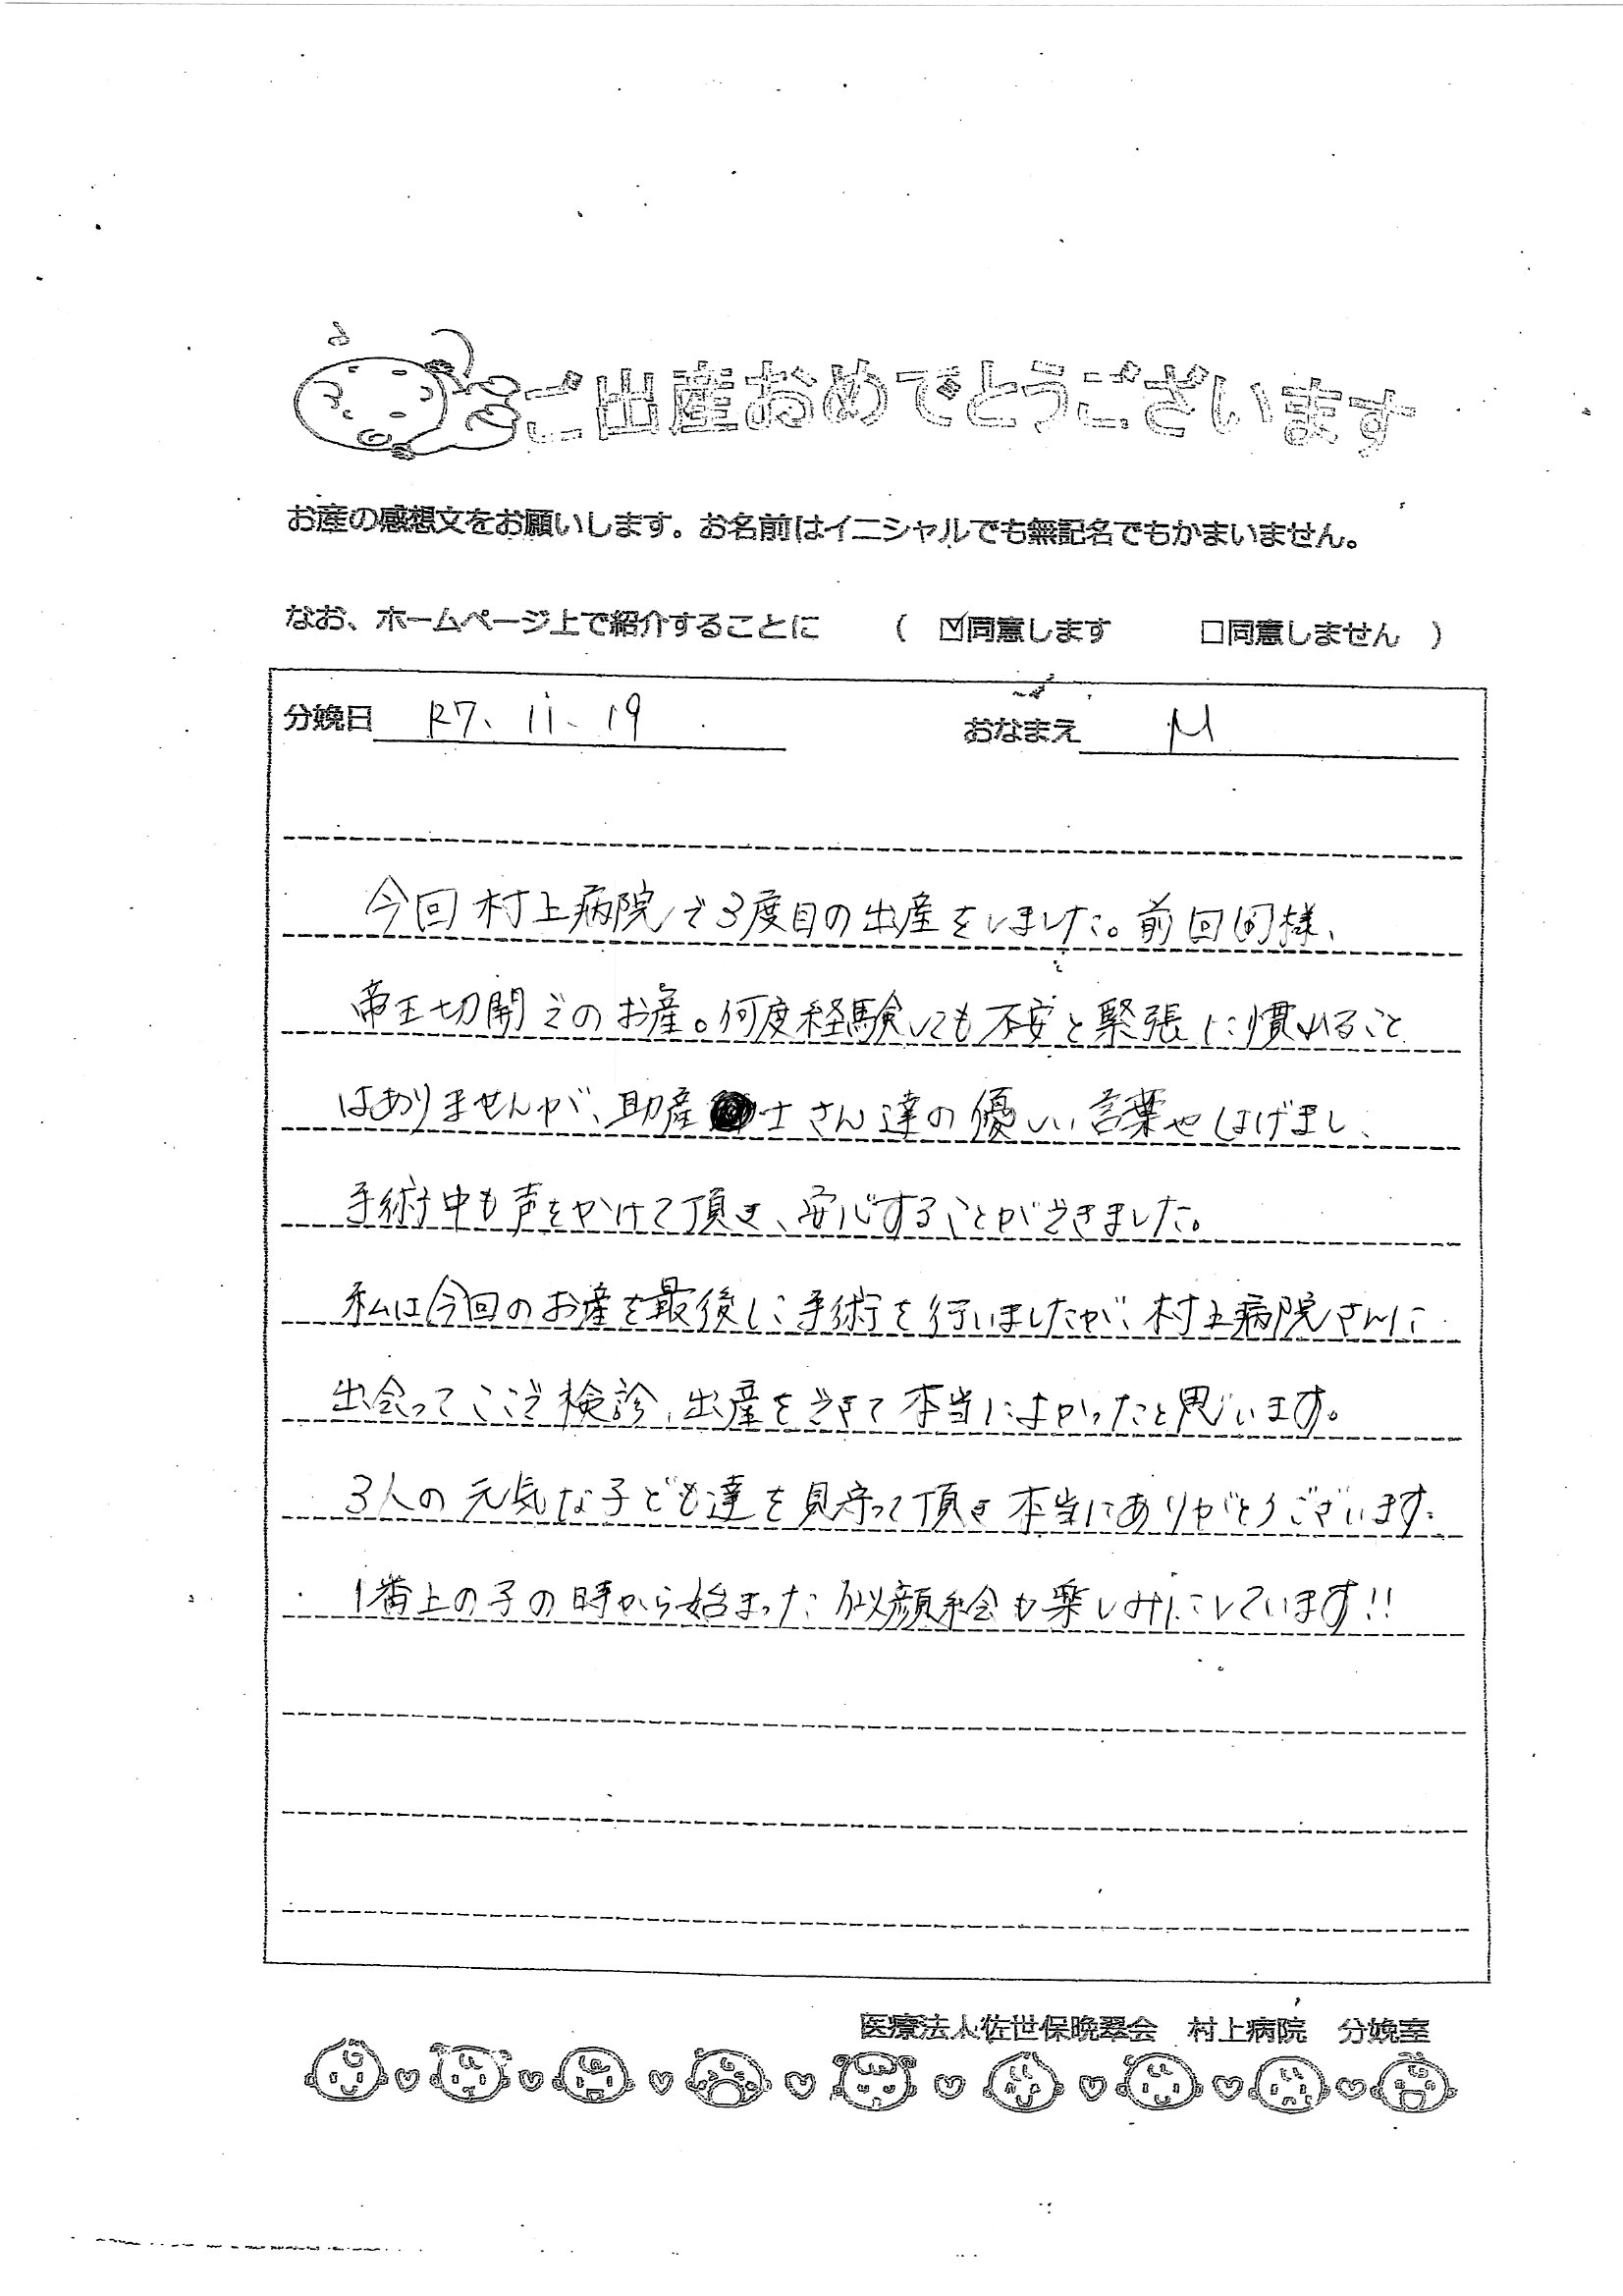 ご出産おめでとうございます
お産の感想文をお願いします。お名前はイニシャルでも無記名でもかまいません。
なお、ホームページ上で紹介することに ( ☑同意します □同意しません )
分娩日 R7.11.19 おなまえ M
今回村上病院で3度目の出産をしました。前回同様、
帝王切開でのお産。何度経験しても不安と緊張に慣れること
はありませんが、助産士さん達の優しい言葉やはげまし、
手術中も声をかけて頂き、安心することができました。
私は今回のお産を最後に手術を行いましたが、村上病院さんに
出会ってここで検診、出産をできて本当によかったと思います。
3人の元気な子ども達を見守って頂き本当にありがとうございます.
1番上の子の時から始まった似顔絵会も楽しみにしています!!
医療法人佐世保晩翠会 村上病院 分娩室